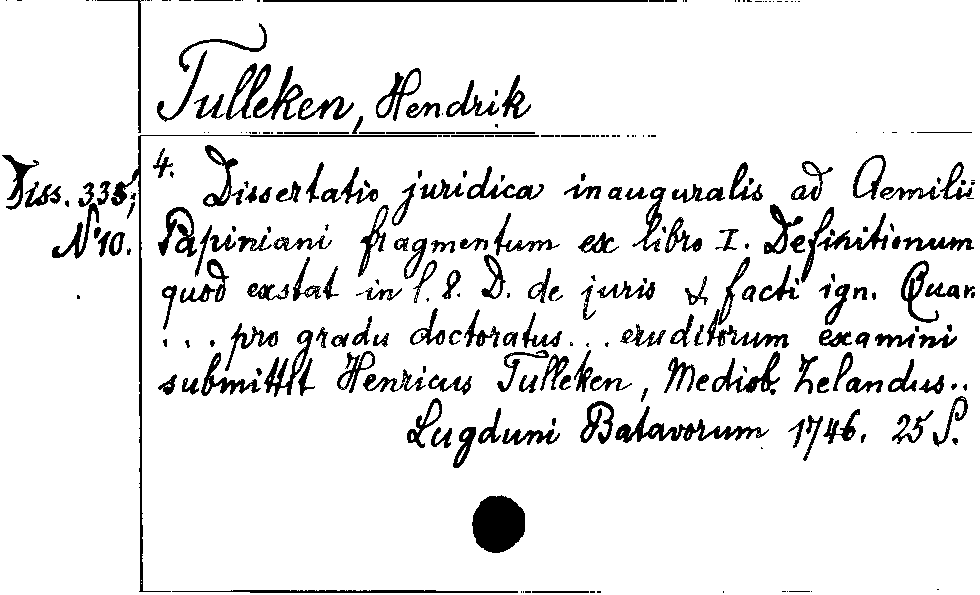 Tulleken, Hendrik
4. Dissertatio juridica inauguralis ad Aemilii
Diss. 335,
N°10.
Papiniani fragmentum ex libro I. Definitionum
quod exstat in l. 8. D. de juris & facti ign. Quam
... pro gradu doctoratus... eruditorum examini
submittit Henricus Tulleken, Mediob. Zelandus..
Lugduni Batavorum 1746. 25 S.